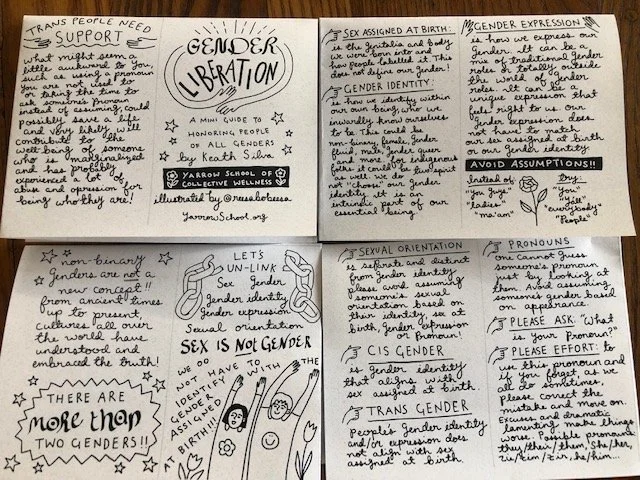 TRANS PEOPLE NEED
SUPPORT
what might seem a
little awkward to you,
such as using a pronoun
you are not used to
or taking the time to
ask someone's pronoun
instead of assuming, could
possibly save a life
and very likely will
contribute to the
well being of someone
who is marginalized
and has probably
experienced a lot of
abuse and opression for
being who they are!
GENDER
LIBERATION
A MINI GUIDE TO
HONORING PEOPLE
OF ALL GENDERS
by Keath Silva
YARROW SCHOOL OF
COLLECTIVE WELLNESS
illustrated by @reesabobeesa
YarrowSchool.org
SEX ASSIGNED AT BIRTH:
is the genitalia and body
we were born into and
how people labelled it. This
does not define our Gender!
GENDER IDENTITY:
is how we identify within
our own being, who we
inwardly know ourselves
to be. This could be
non-binary, female, Gender
fluid, male, Gender queer
and more, for indigenous
folks it could be two spirit
as well. we do not
"choose" our Gender
identity, it is an
intrinsic part of our
essential being.
GENDER EXPRESSION
is how we express our
Gender. It can be a
mix of traditional Gender
roles or totally outside
the world of gender
roles. It can be a
unique expression that
feels right to us. Our
Gender expression does
not have to match
our sex assigned at birth
or our Gender identity
AVOID ASSUMPTIONS!!
Instead of:
"you guys"
"ladies"
"ma'am"
try:
"You"
"Y'all"
"everybody"
"People"
non-binary
Genders are not a
new concept!!
from ancient times
up to present
cultures all over
the world have
understood and
embraced the truth!
THERE ARE
MORE THAN
TWO GENDERS!!
LET'S
UN-LINK
Sex Gender
Gender identity
Gender expression
Sexual orientation
SEX IS NOT GENDER
WE DO
NOT HAVE TO
IDENTIFY WITH THE
GENDER
ASSIGNED
AT
BIRTH!!!
SEXUAL ORIENTATION
is separate and distinct
from Gender identity
please avoid assuming
someone's sexual
orientation based on
their identity, sex at
birth, Gender expression
or Pronoun!
CIS GENDER
is Gender identity
that aligns with
sex assigned at birth.
TRANS GENDER
People's Gender identity
and/or expression does
not align with sex
assigned at birth.
PRONOUNS
one cannot Guess
someone's pronoun
just by looking at
them. Avoid assuming
someone's gender based
on appearance.
PLEASE ASK: "What
is Your Pronoun?"
PLEASE EFFORT: to
use this pronoun and
if you forget as we
all do sometimes,
Please correct the
mistake and move on.
Excuses and dramatic
lamenting make things
worse. Possible pronouns
they/their/them, She/her,
zie/zim/zir, he/him...